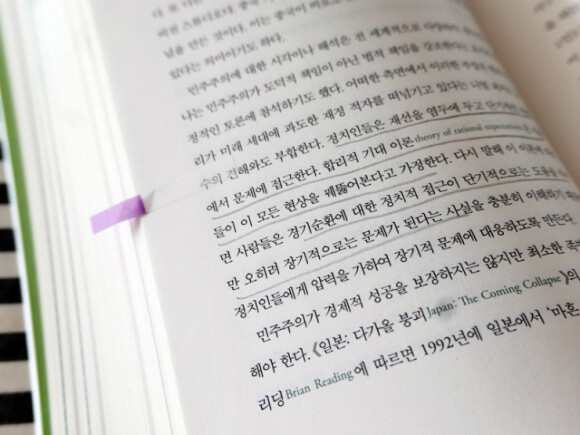 다. 또 다른
버린 스튜디오다. 중국
남을 만든 것이다. 이는 중국이
있다는 의미이기도 하다.
민주주의에 대한 시각이나 해석은 전 세계적으로
나는 민주주의가 도덕적 책임이 아닌 법적 책임을 강조한다는
정적인 토론에 참석하기도 했다. 어떠한 측면에서 이러한
리가 미래 세대에 과도한 재정 적자를 떠넘기고 있다는
수의 견해와도 부합한다. 정치인들은 재선을 염두에 두고
에서 문제에 접근한다. 합리적 기대 이론theory of rational
들이 이 모든 현상을 꿰뚫어본다고 가정한다. 다시 말해 이
면 사람들은 경기순환에 대한 정치적 접근이 단기적으로는
만 오히려 장기적으로는 문제가 된다는 사실을 충분히 이해하기
정치인들에게 압력을 가하여 장기적 문제에 대응하도록 만든다.
민주주의가 경제적 성공을 보장하지는 않지만 최소한
해야 한다. 《일본: 다가올 붕괴Japan: The Coming Collapse》의
리딩Brian Reading에 따르면 1992년에 일본에서 '마흔